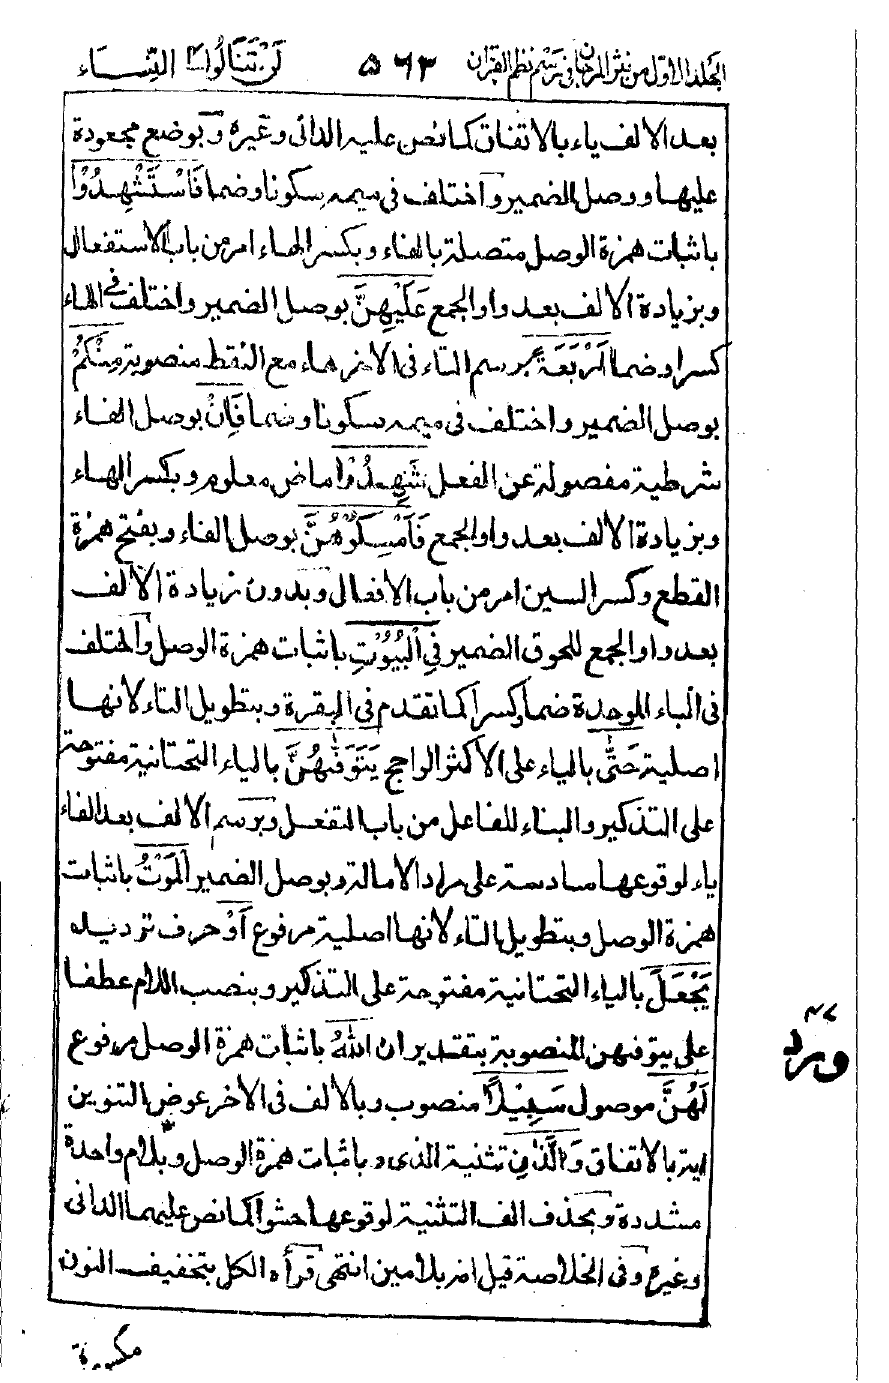 الجلد الاول من نثر المرجان فى رسم نظم القران ٥٦٣ لن تنالوا ٤ النساء
بعد الالف ياء بالاتفاق كما نص عليه الدانى وغيره وبوضع مجعودة
عليها ووصل الضمير واختلف فى ميمه سكونا وضما فَاسْتَشْهِدُوْا
باثبات همزة الوصل متصلة بالفاء وبكسر الهاء امر من باب الاستفعال
وبزيادة الالف بعد واو الجمع عَلَيْهِنَّ بوصل الضمير واختلف فى الهاء
كسرا وضما اَرْبَعَةً برسم التاء فى الاخر هاء مع النقط منصوبة مِنْكُمْ
بوصل الضمير واختلف فى ميمه سكونا وضما فَاِنْ بوصل الفاء
شرطية مفصولة عن الفعل شَهِدُوْا ماض معلوم وبكسر الهاء
وبزيادة الالف بعد واو الجمع فَاَمْسِكُوْهُنَّ بوصل الفاء وبفتح همزة
القطع وكسر السين امر من باب الافعال وبدون زيادة الالف
بعد واو الجمع للحوق الضمير فِى الْبُيُوْتِ باثبات همزة الوصل واختلف
فى الباء الموحدة ضما وكسرا كما تقدم فى البقرة وبتطويل التاء لانها
اصلية حَتّٰى بالياء على الاكثر الراجح يَتَوَفّٰىهُنَّ بالياء التحتانية مفتوحة
على التذكير والبناء للفاعل من باب التفعل وبرسم الالف بعد الفاء
ياء لوقوعها سادسة على مراد الامالة وبوصل الضمير الْمَوْتُ باثبات
همزة الوصل وبتطويل التاء لانها اصلية مرفوع اَوْ حرف ترديد
يَجْعَلَ بالياء التحتانية مفتوحة على التذكير وبنصب اللام عطفا
على يتوفهن المنصوبة بتقدير ان اللّٰهُ باثبات همزة الوصل مرفوع
لَهُنَّ موصول سَبِيْلًا منصوب وبالالف فى الاخر عوض التنوين
اية بالاتفاق وَالَّذٰنِ تثنية الذى وباثبات همزة الوصل وبلام واحدة
مشددة وبحذف الف التثنية لوقوعها حشوا كما نص عليهما الدانى
وغيره وفى الخلاصة قيل انه بلامين انتهى قرأه الكل بتخفيف النون
مكسورة